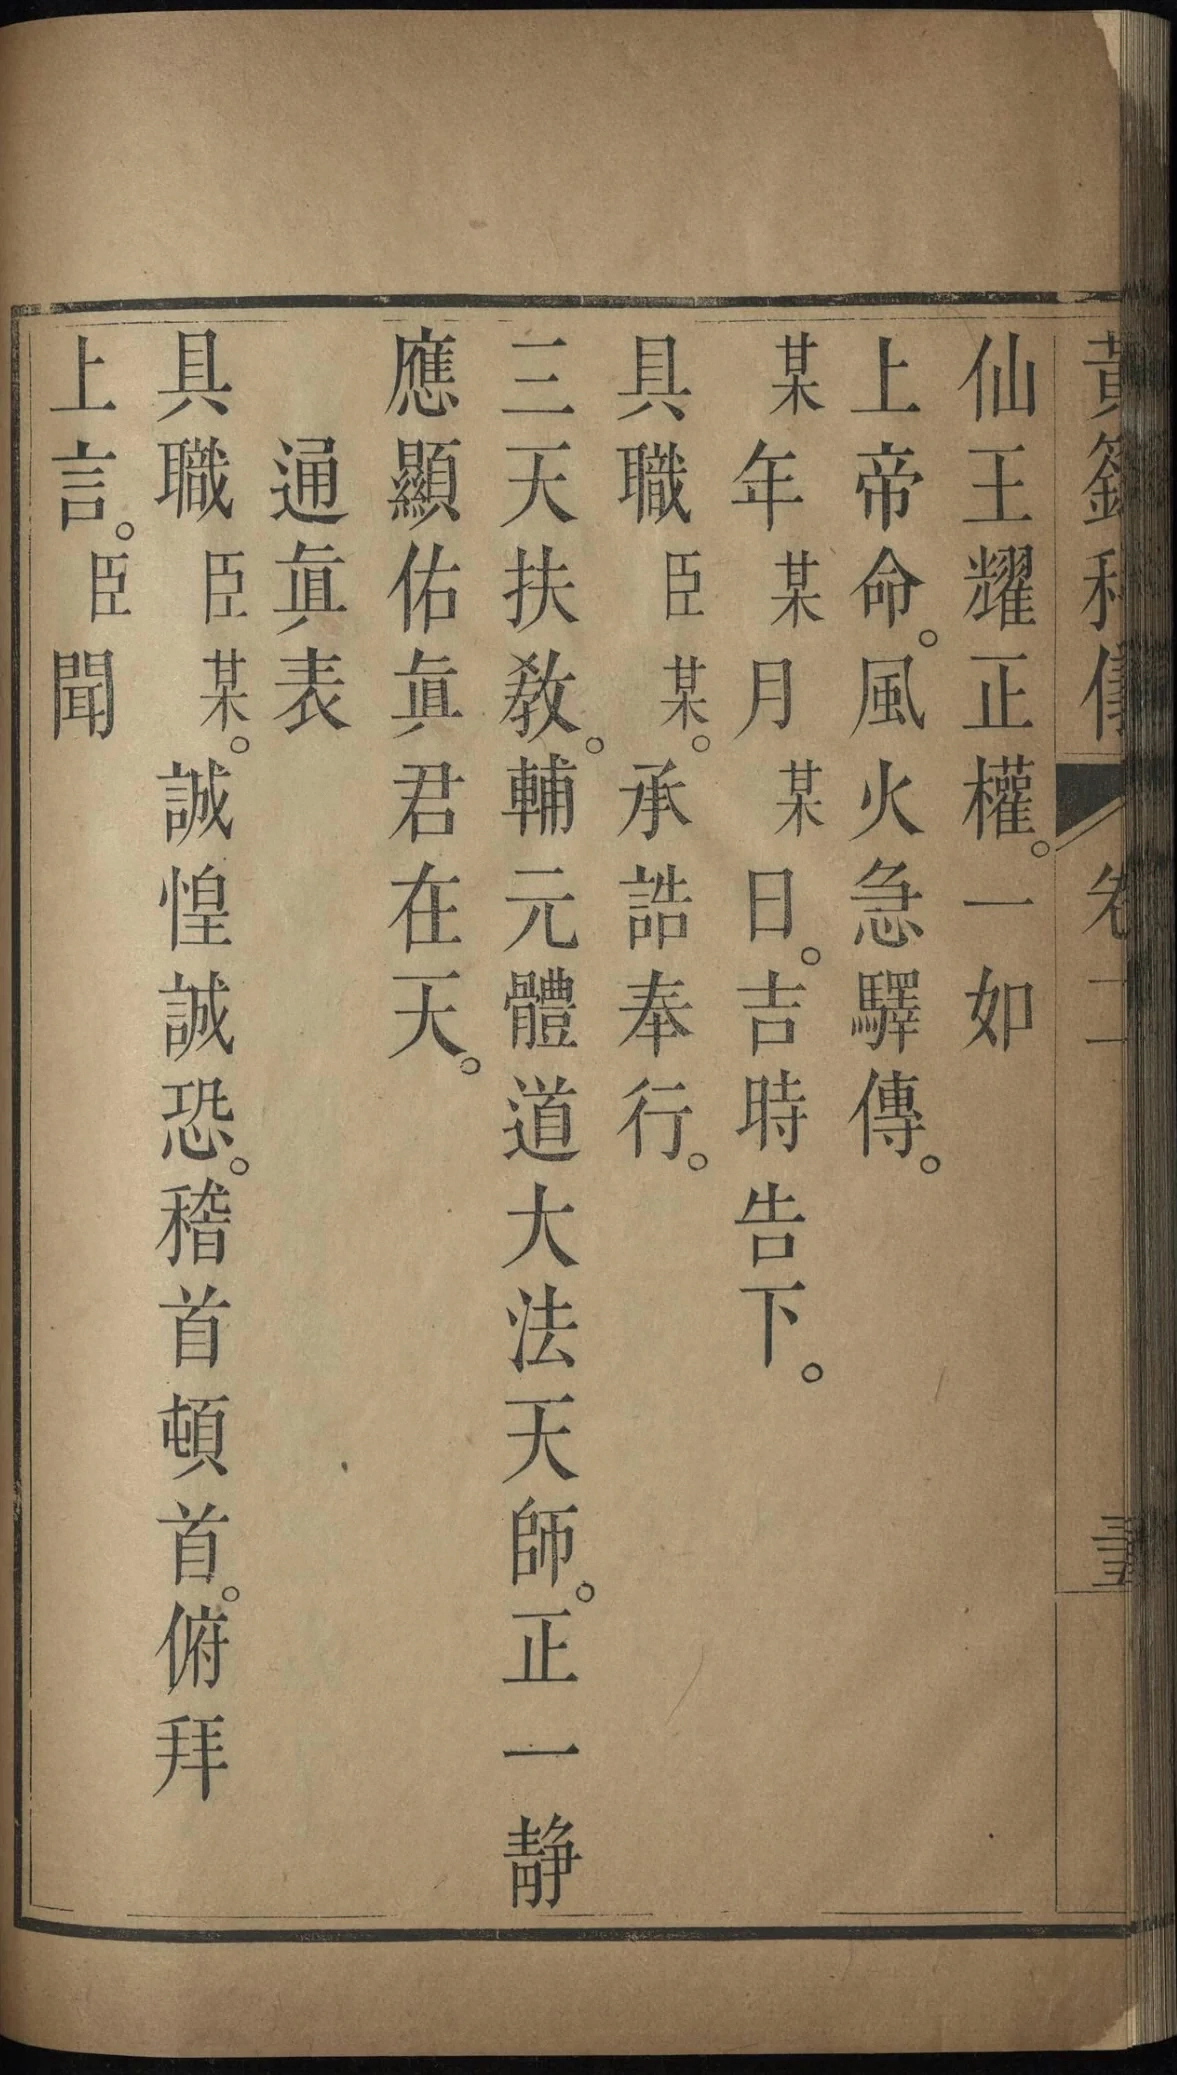 黃籙科儀 卷二
仙王耀正權。一如
上帝命。風火急驛傳。
某年某月某日。吉時告下。
具職臣某。承誥奉行。
三天扶教。輔元體道大法天師。正一靜
應顯佑眞君在天。
通眞表
具職臣某。誠惶誠恐。稽首頓首。俯拜
上言。臣聞